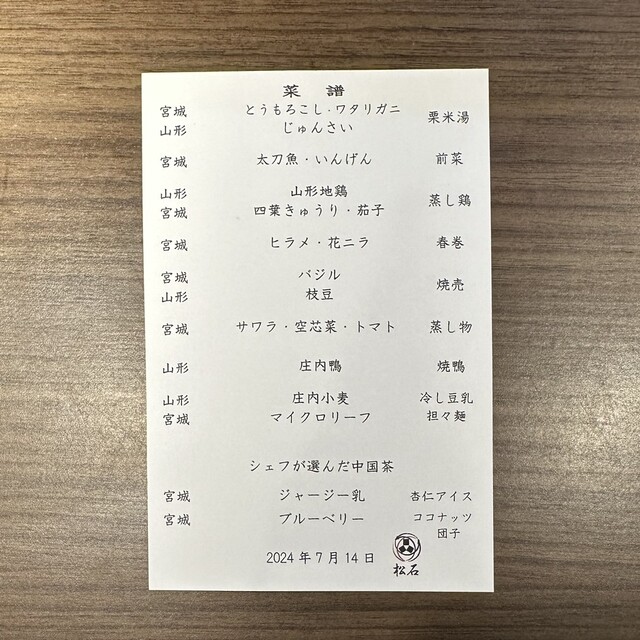 菜 譜
宮城 とうもろこし・ワタリガニ 栗米湯
山形 じゅんさい
宮城 太刀魚・いんげん 前菜
山形 山形地鶏 蒸し鶏
宮城 四葉きゅうり・茄子
宮城 ヒラメ・花ニラ 春巻
宮城 バジル 焼売
山形 枝豆
宮城 サワラ・空芯菜・トマト 蒸し物
山形 庄内鴨 焼鴨
山形 庄内小麦 冷し豆乳
宮城 マイクロリーフ 担々麺
シェフが選んだ中国茶
宮城 ジャージー乳 杏仁アイス
宮城 ブルーベリー ココナッツ
団子
2024年7月14日
松石